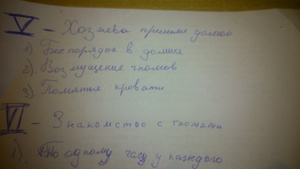 V – Хозяева пришли домой
1) Беспорядок в домике
2) Возмущение гномов
3) Помятые кровати
VI – Знакомство с гномами
1) По одному часу у каждого